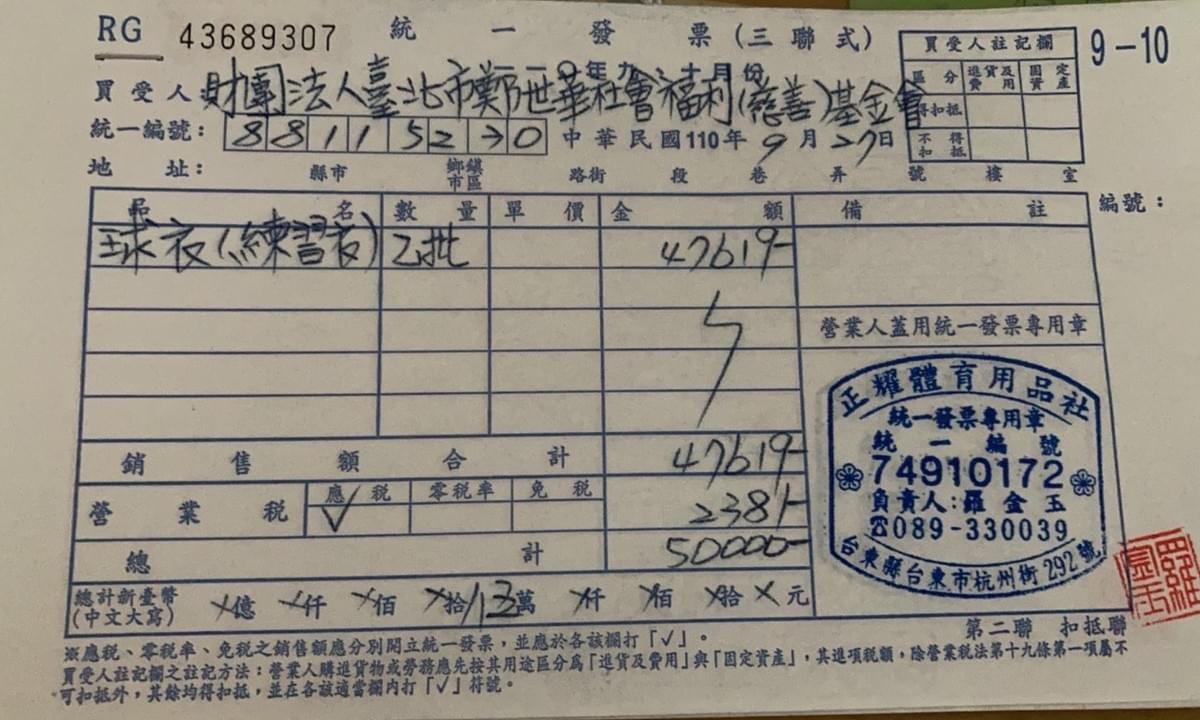 RG 43689307 統一發票(三聯式) 9-10
一一〇年九、十月份
買受人註記欄
區分 進貨及費用 固定資產
得扣抵
不得扣抵
買受人:財團法人臺北市鄭世華社會福利(慈善)基金會
統一編號: 88115230 中華民國110年9月27日
地址: 縣市 鄉鎮市區 路街 段 巷 弄 號 樓 室
品名 數量 單價 金額 備註 編號:
球衣(練習衣) 乙批 47619-
營業人蓋用統一發票專用章
正耀體育用品社
統一發票專用章
統一編號
74910172
負責人:羅金玉
☎089-330039
台東縣台東市杭州街292號
羅金玉
銷售額合計 47619-
營業稅 應稅 √ 零稅率 免稅 2381-
總計 50000-
總計新臺幣(中文大寫) ×億 ×仟 ×佰 ×拾 伍萬 ×仟 ×佰 ×拾 ×元
第二聯 扣抵聯
※應稅、零稅率、免稅之銷售額應分別開立統一發票,並應於各該欄打「√」。
買受人註記欄之註記方法:營業人購進貨物或勞務應先按其用途區分為「進貨及費用」與「固定資產」,其進項稅額,除營業稅法第十九條第一項屬不
可扣抵外,其餘均得扣抵,並在各該適當欄內打「√」符號。